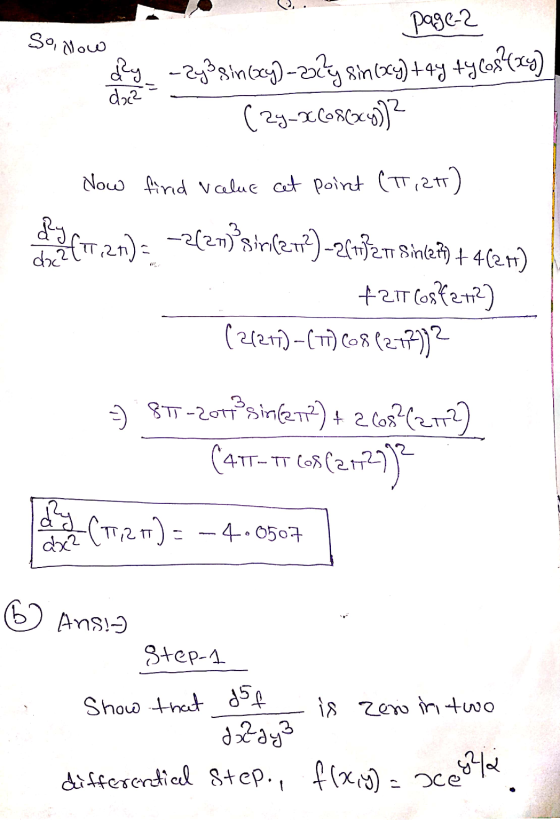 page-2
So, Now
d²y/dx² = (-2y³ sin(xy) - 2x²y sin(xy) + 4y + y cos²(xy)) / (2y - x cos(xy))²
Now find value at point (π, 2π)
d²y/dx² (π, 2π) = -2(2π)³ sin(2π²) - 2(π)² 2π sin(2π²) + 4(2π)
+ 2π cos²(2π²)
(2(2π) - (π) cos(2π²))²
⇒ (8π - 20π³ sin(2π²) + 2 cos²(2π²)) / (4π - π cos(2π²))²
d²y/dx² (π, 2π) = -4.0507
(b) Ans:→
Step-1
Show that d⁵f/∂x²∂y³ is zero in two
differential step., f(x,y) = xe^(y²/2).